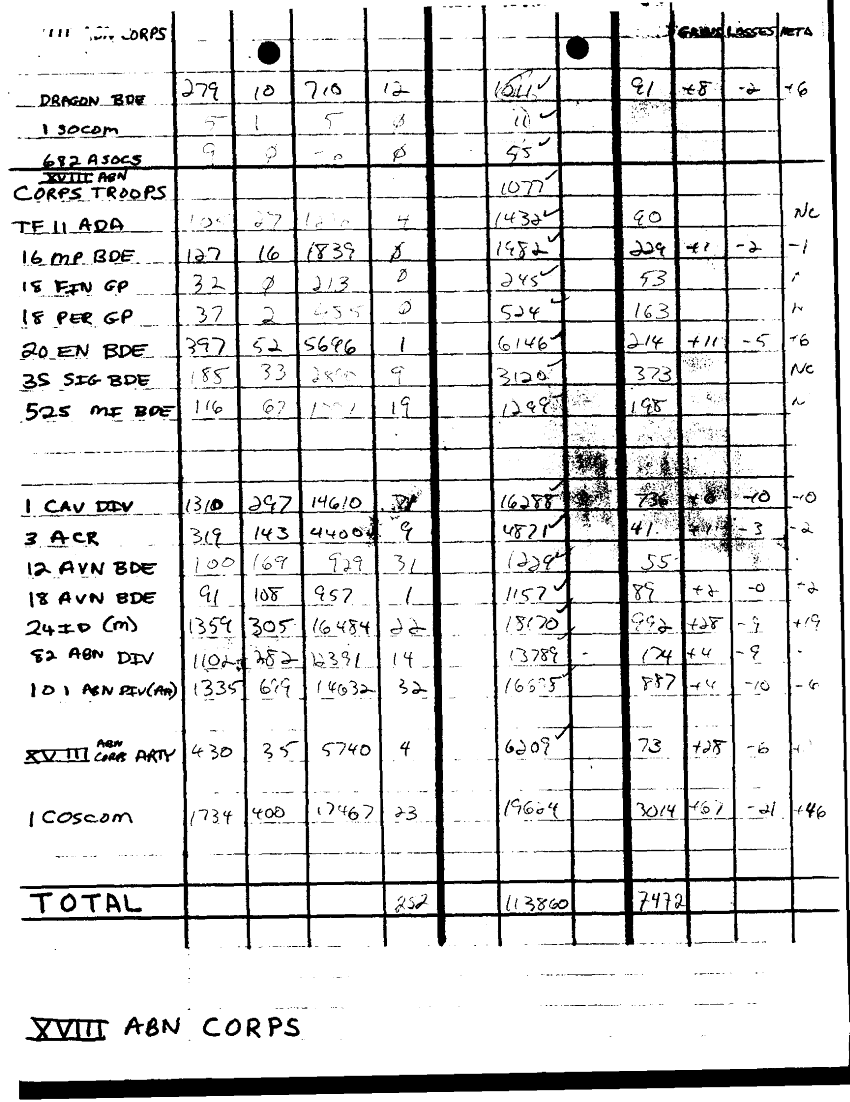 ABN CORPS GAINS LOSSES NET Δ
DRAGON BDE 279 10 710 12 1011 ✓ 91 +8 -2 +6
1 SOCOM 5 1 5 Ø 11 ✓
682 ASOCS 9 Ø Ø 55 ✓
XVIII ABN
CORPS TROOPS 1077 ✓
TF 11 ADA 27 4 1432 ✓ 90 NC
16 MP BDE 127 16 1839 Ø 1982 ✓ 229 +1 -2 -1
18 FIN GP 32 Ø 213 0 245 ✓ 53
18 PER GP 37 2 0 524 ✓ 163
20 EN BDE 397 52 5696 1 6146 ✓ 214 +11 -5 +6
35 SIG BDE 185 33 9 3120 ✓ 373 NC
525 MI BDE 116 67 19 1299 198
1 CAV DIV 1310 297 14610 16288 ✓ 736 -10 -10
3 ACR 319 143 4400 9 4871 ✓ 41 -3 -2
12 AVN BDE 100 169 929 31 1229 ✓ 55
18 AVN BDE 91 108 957 1 1157 ✓ 89 +2 -0 +2
24 ID (M) 1359 305 16484 22 18170 ✓ 992 +28 -9 +19
82 ABN DIV 1102 282 12391 14 13789 - 174 +4 -9
101 ABN DIV (AA) 1335 699 14632 32 887 +4 -10 -6
XVIII ABN CORPS ARTY 430 35 5740 4 6209 ✓ 73 +28 -6
1 COSCOM 1734 400 17467 23 19624 3014 +67 -21 +46
TOTAL 252 113860 7472
XVIII ABN CORPS